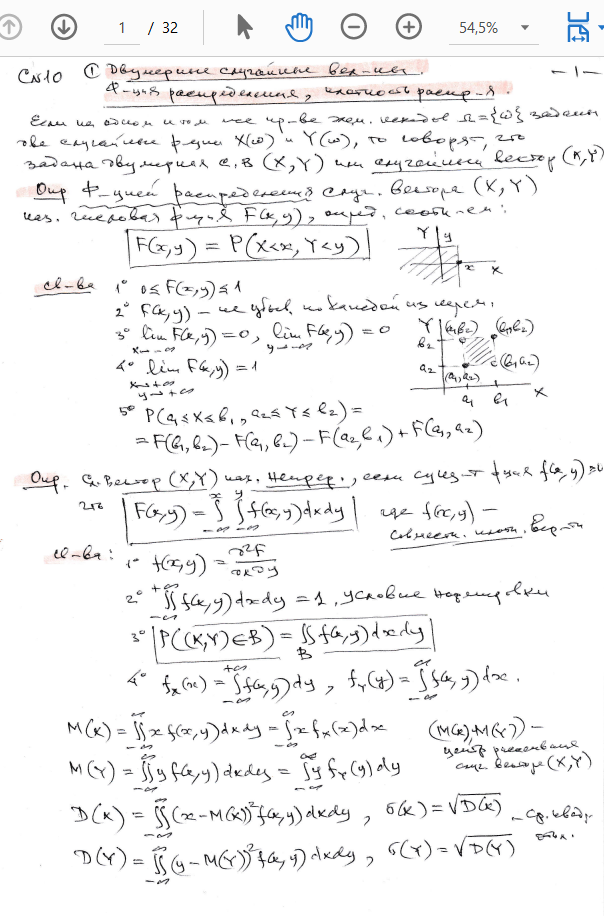 1 / 32 54,5%
Сл10 ① Двумерные случайные вел-ны. - 1 -
Ф-ция распределения, плотность распр-я.
Если на одном и том же пр-ве элем. исходов Ω={ω} заданы
две случайные ф-ции X(ω) и Y(ω), то говорят, что
задана двумерная с.в (X,Y) или случайный вектор (X,Y)
Опр Ф-цией распределения случ. вектора (X,Y)
наз. числовая ф-ция F(x,y), опред. соотн-ем:
F(x,y) = P(X<x, Y<y)
Y y
x X
Св-ва 1° 0≤F(x,y)≤1
2° F(x,y) – не убыв. по каждой из перем.
3° lim F(x,y)=0, lim F(x,y)=0
x→-∞ y→-∞
4° lim F(x,y)=1
x→+∞
y→+∞
Y (a₁b₂) (b₁b₂)
b₂
a₂ (a₁,a₂) (b₁a₂)
a₁ b₁ X
5° P(a₁≤X≤b₁, a₂≤Y≤b₂)=
=F(b₁,b₂)-F(a₁,b₂)-F(a₂,b₁)+F(a₁,a₂)
Опр. Сл. вектор (X,Y) наз. непрер., если сущ-т ф-ция f(x,y)≥0
что F(x,y)=∫_{-∞}^{x}∫_{-∞}^{y} f(x,y)dxdy где f(x,y) –
совместн. плотн. вер-ти
Св-ва: 1° f(x,y)=∂²F/∂x∂y
2° ∬_{-∞}^{+∞} f(x,y)dxdy=1, условие нормировки
3° P((X,Y)∈B)=∬_B f(x,y)dxdy
4° f_X(x)=∫_{-∞}^{+∞} f(x,y)dy, f_Y(y)=∫_{-∞}^{∞} f(x,y)dx.
M(X)=∬_{-∞}^{∞} x f(x,y)dxdy=∫_{-∞}^{∞} x f_X(x)dx (M(X),M(Y)) –
центр рассеивания
случ вектора (X,Y)
M(Y)=∬_{-∞}^{∞} y f(x,y)dxdy=∫_{-∞}^{∞} y f_Y(y)dy
D(X)=∬_{-∞}^{∞} (x-M(X))² f(x,y)dxdy, σ(X)=√D(X) – ср. квадр.
откл.
D(Y)=∬_{-∞}^{∞} (y-M(Y))² f(x,y)dxdy, σ(Y)=√D(Y)